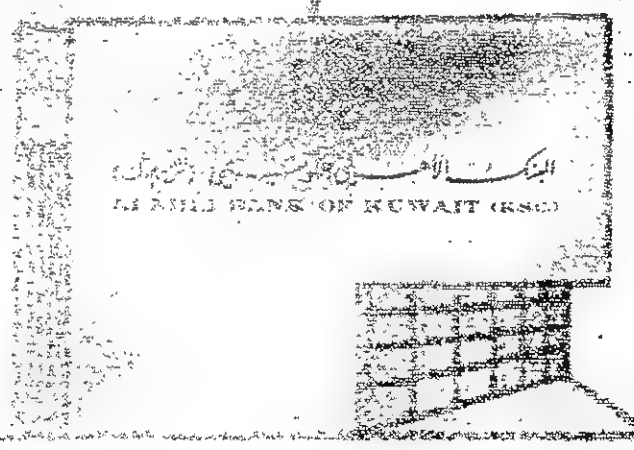 البنك الأهلي الكويتي
AL AHLI BANK OF KUWAIT (KSC)